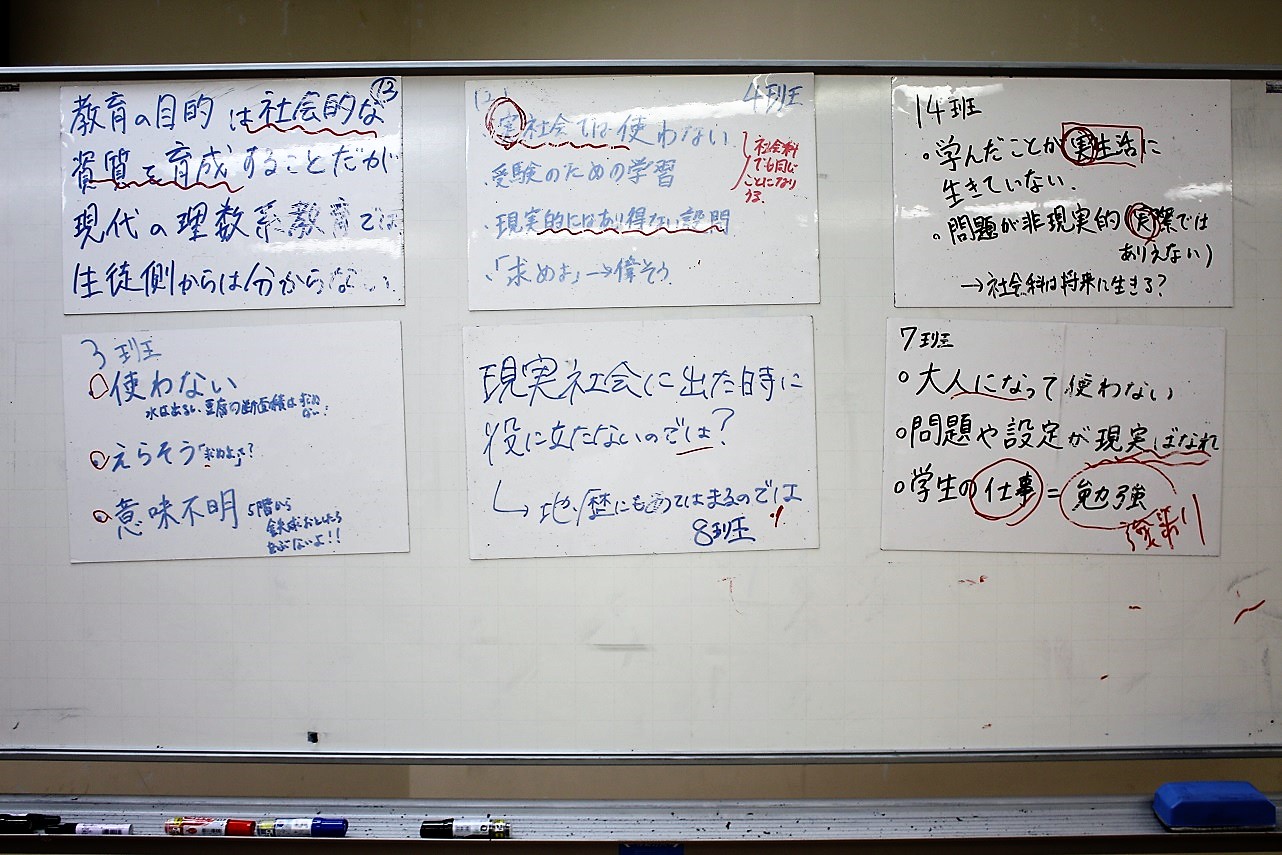 ⑬
教育の目的は社会的な
資質を育成することだが
現代の理数系教育では
生徒側からは分からない.
4班
実社会では使わない
・受験のための学習
・現実的にはあり得ない設問
・「求めよ」→偉そう
社会科
でも同じ
ことになり
うる.
14班
・学んだことが実生活に
生きていない.
・問題が非現実的(実際では
ありえない)
→社会科は将来に生きる?
3班
○使わない
豆腐の断面積は求め
ない!
○えらそう「求めよ」?
○意味不明 5階から
鉄球おとしたら
あぶないよ!!
現実社会に出た時に
役に立たないのでは?
↳地、歴にもあてはまるのでは
8班
7班
○大人になって使わない
○問題や設定が現実ばなれ
○学生の仕事=勉強